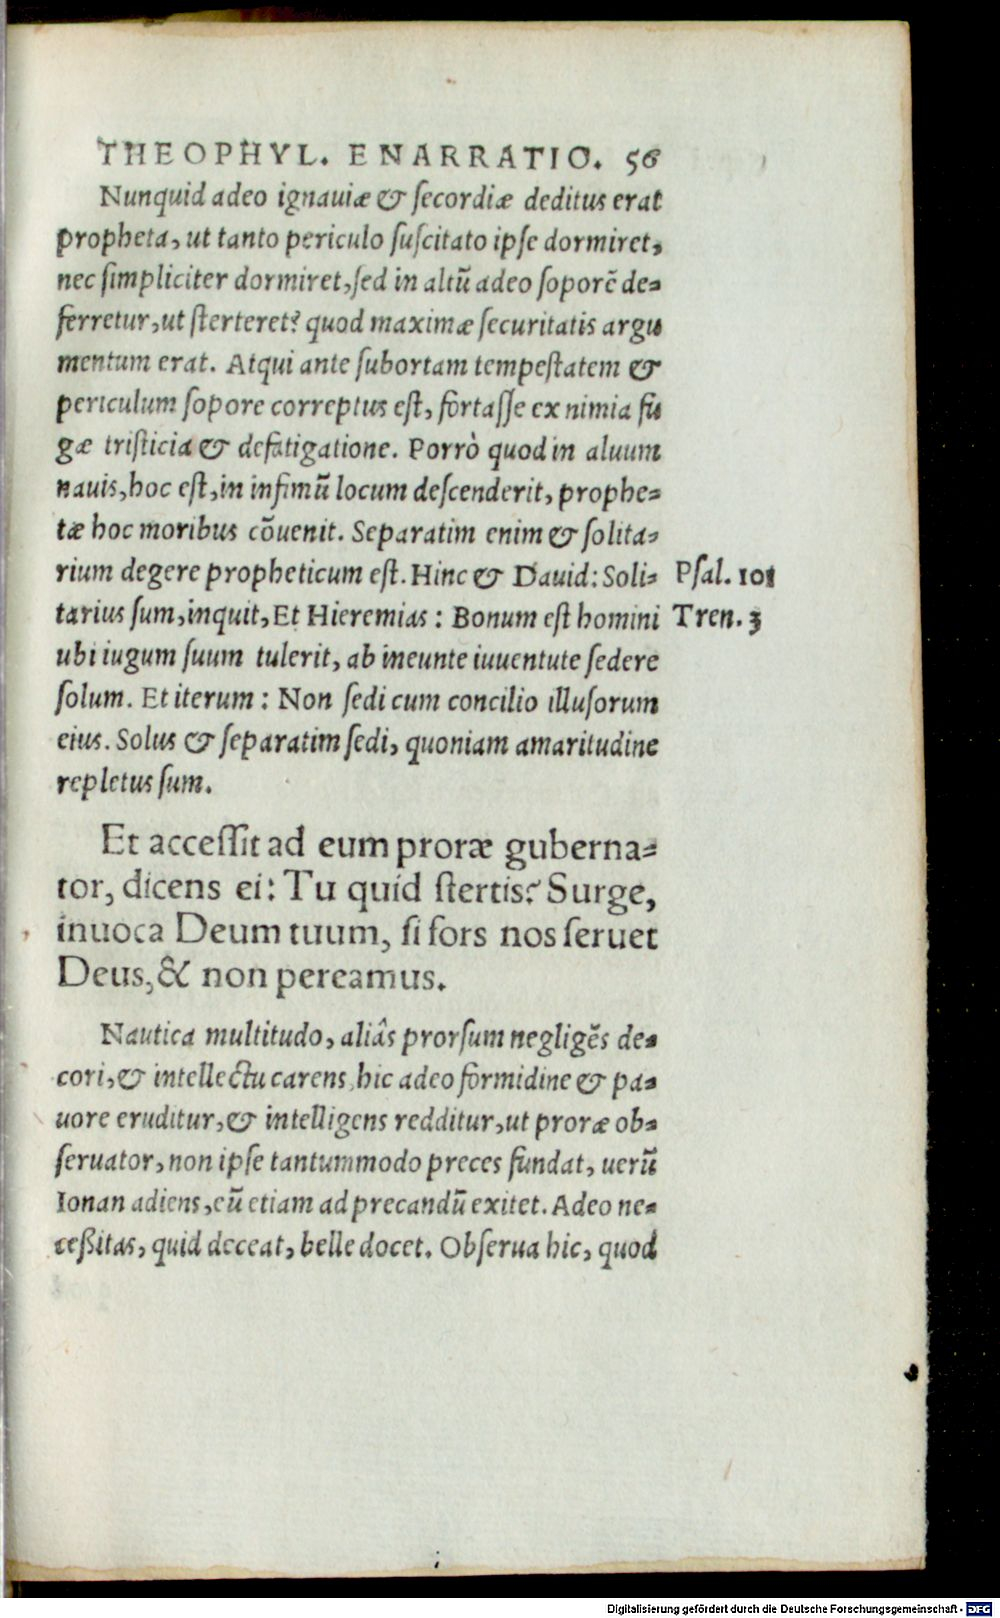 THEOPHYL. ENARRATIO. 56
Nunquid adeo ignauiæ & ſecordiæ deditus erat
propheta, ut tanto periculo ſuſcitato ipſe dormiret,
nec ſimpliciter dormiret, ſed in altū adeo ſoporē de-
ferretur, ut ſterteret? quod maximæ ſecuritatis argu
mentum erat. Atqui ante ſubortam tempeſtatem &
periculum ſopore correptus eſt, fortaſſe ex nimia fu
gæ triſticia & defatigatione. Porrò quod in aluum
nauis, hoc eſt, in infimū locum deſcenderit, prophe-
tæ hoc moribus cōuenit. Separatim enim & ſolita-
rium degere propheticum eſt. Hinc & Dauid: Soli- Pſal. 101
tarius ſum, inquit, Et Hieremias: Bonum eſt homini Tren. 3
ubi iugum ſuum tulerit, ab ineunte iuuentute ſedere
ſolum. Et iterum: Non ſedi cum concilio illuſorum
eius. Solus & ſeparatim ſedi, quoniam amaritudine
repletus ſum.
Et acceſſit ad eum proræ guberna-
tor, dicens ei: Tu quid ſtertis? Surge,
inuoca Deum tuum, ſi fors nos ſeruet
Deus, & non pereamus.
Nautica multitudo, aliâs prorſum negligēs de-
cori, & intellectu carens, hic adeo formidine & pa-
uore eruditur, & intelligens redditur, ut proræ ob-
ſeruator, non ipſe tantummodo preces fundat, uerū
Ionan adiens, eū etiam ad precandū exitet. Adeo ne-
ceßitas, quid deceat, belle docet. Obſerua hic, quod
Digitalisierung gefördert durch die Deutsche Forschungsgemeinschaft - DFG